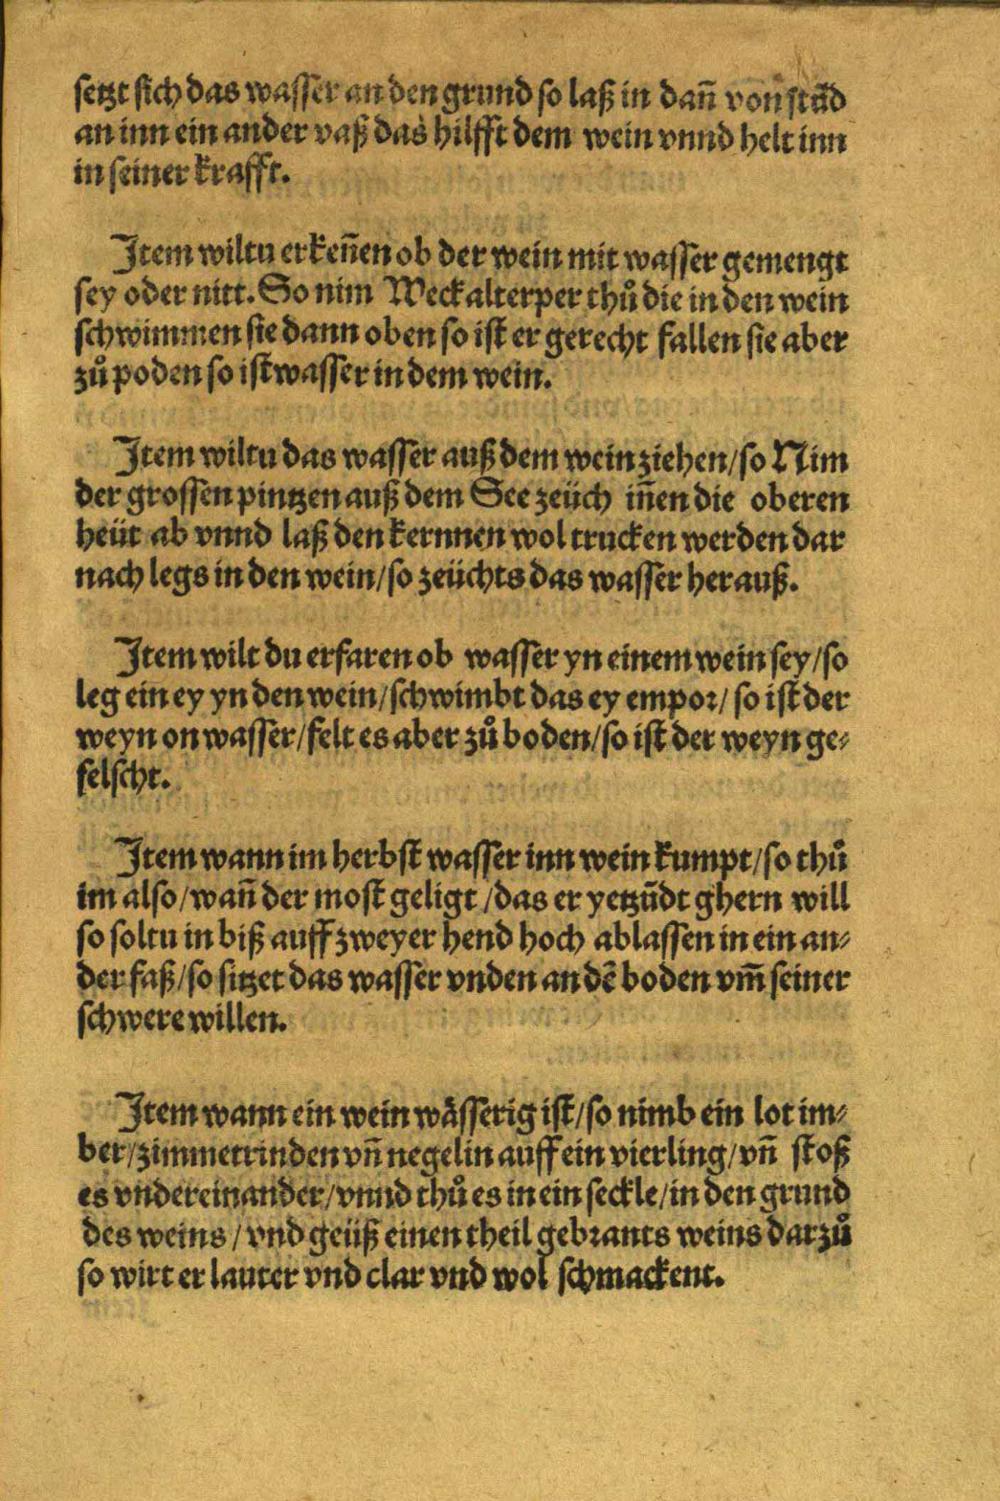 setzt sich das wasser an den grund so laß in dañ von stād
an inn ein ander vaß das hilfft dem wein vnnd helt inn
in seiner krafft.
Item wiltu erkeñen ob der wein mit wasser gemengt
sey oder nitt. So nim Weckalterper thů die in den wein
schwimmen sie dann oben so ist er gerecht fallen sie aber
zů poden so ist wasser in dem wein.
Item wiltu das wasser auß dem wein ziehen/so Nim
der grossen pintzen auß dem See zeüch iñen die oberen
heüt ab vnnd laß den kernnen wol trucken werden dar
nach legs in den wein/so zeüchts das wasser herauß.
Item wilt du erfaren ob wasser yn einem wein sey/so
leg ein ey yn den wein/schwimbt das ey empor/so ist der
weyn on wasser/felt es aber zů boden/so ist der weyn ge⸗
felscht.
Item wann im herbst wasser inn wein kumpt/so thů
im also/wañ der most geligt/das er yetzūdt ghern will
so soltu in biß auff zweyer hend hoch ablassen in ein an⸗
der faß/so sitzet das wasser vnden an dē boden vm̃ seiner
schwere willen.
Item wann ein wein wässerig ist/so nimb ein lot im⸗
ber/zimmetrinden vñ negelin auff ein vierling/vñ stoß
es vndereinander/vnnd thů es in ein seckle/in den grund
des weins/vnd geüß einen theil gebrants weins darzů
so wirt er lauter vnd clar vnd wol schmackent.